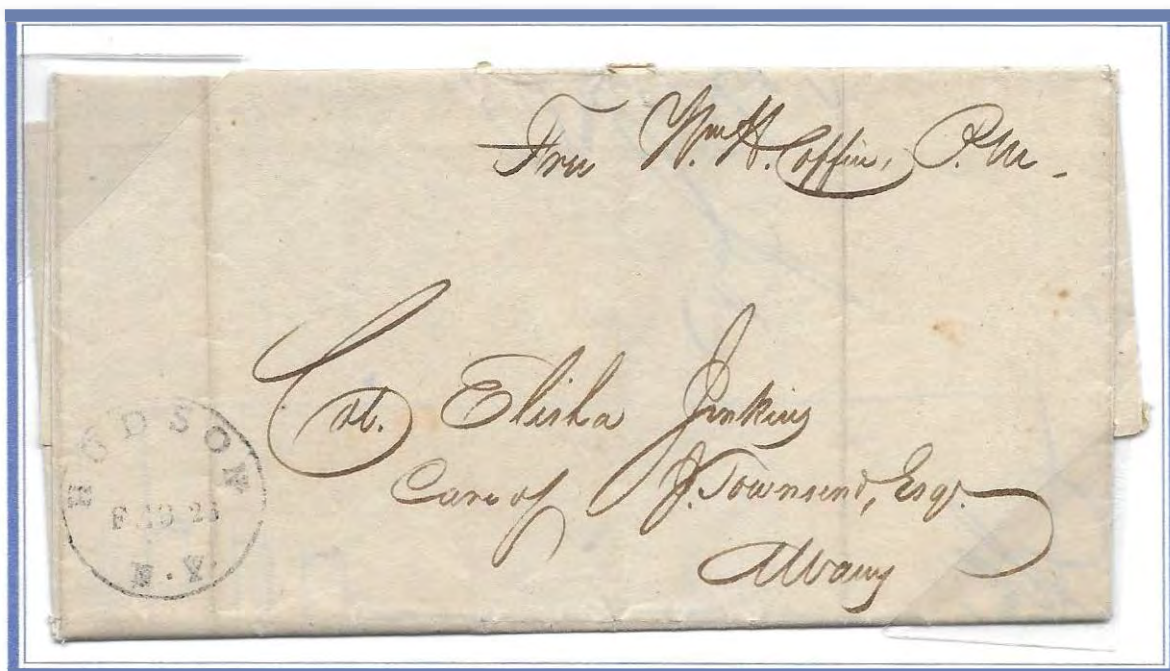 Free Wm H. Coffin, P.M.
Col. Elisha Jenkins
Care of J. Townsend, Esqr.
Albany
HUDSON
FEB 23
N.Y.